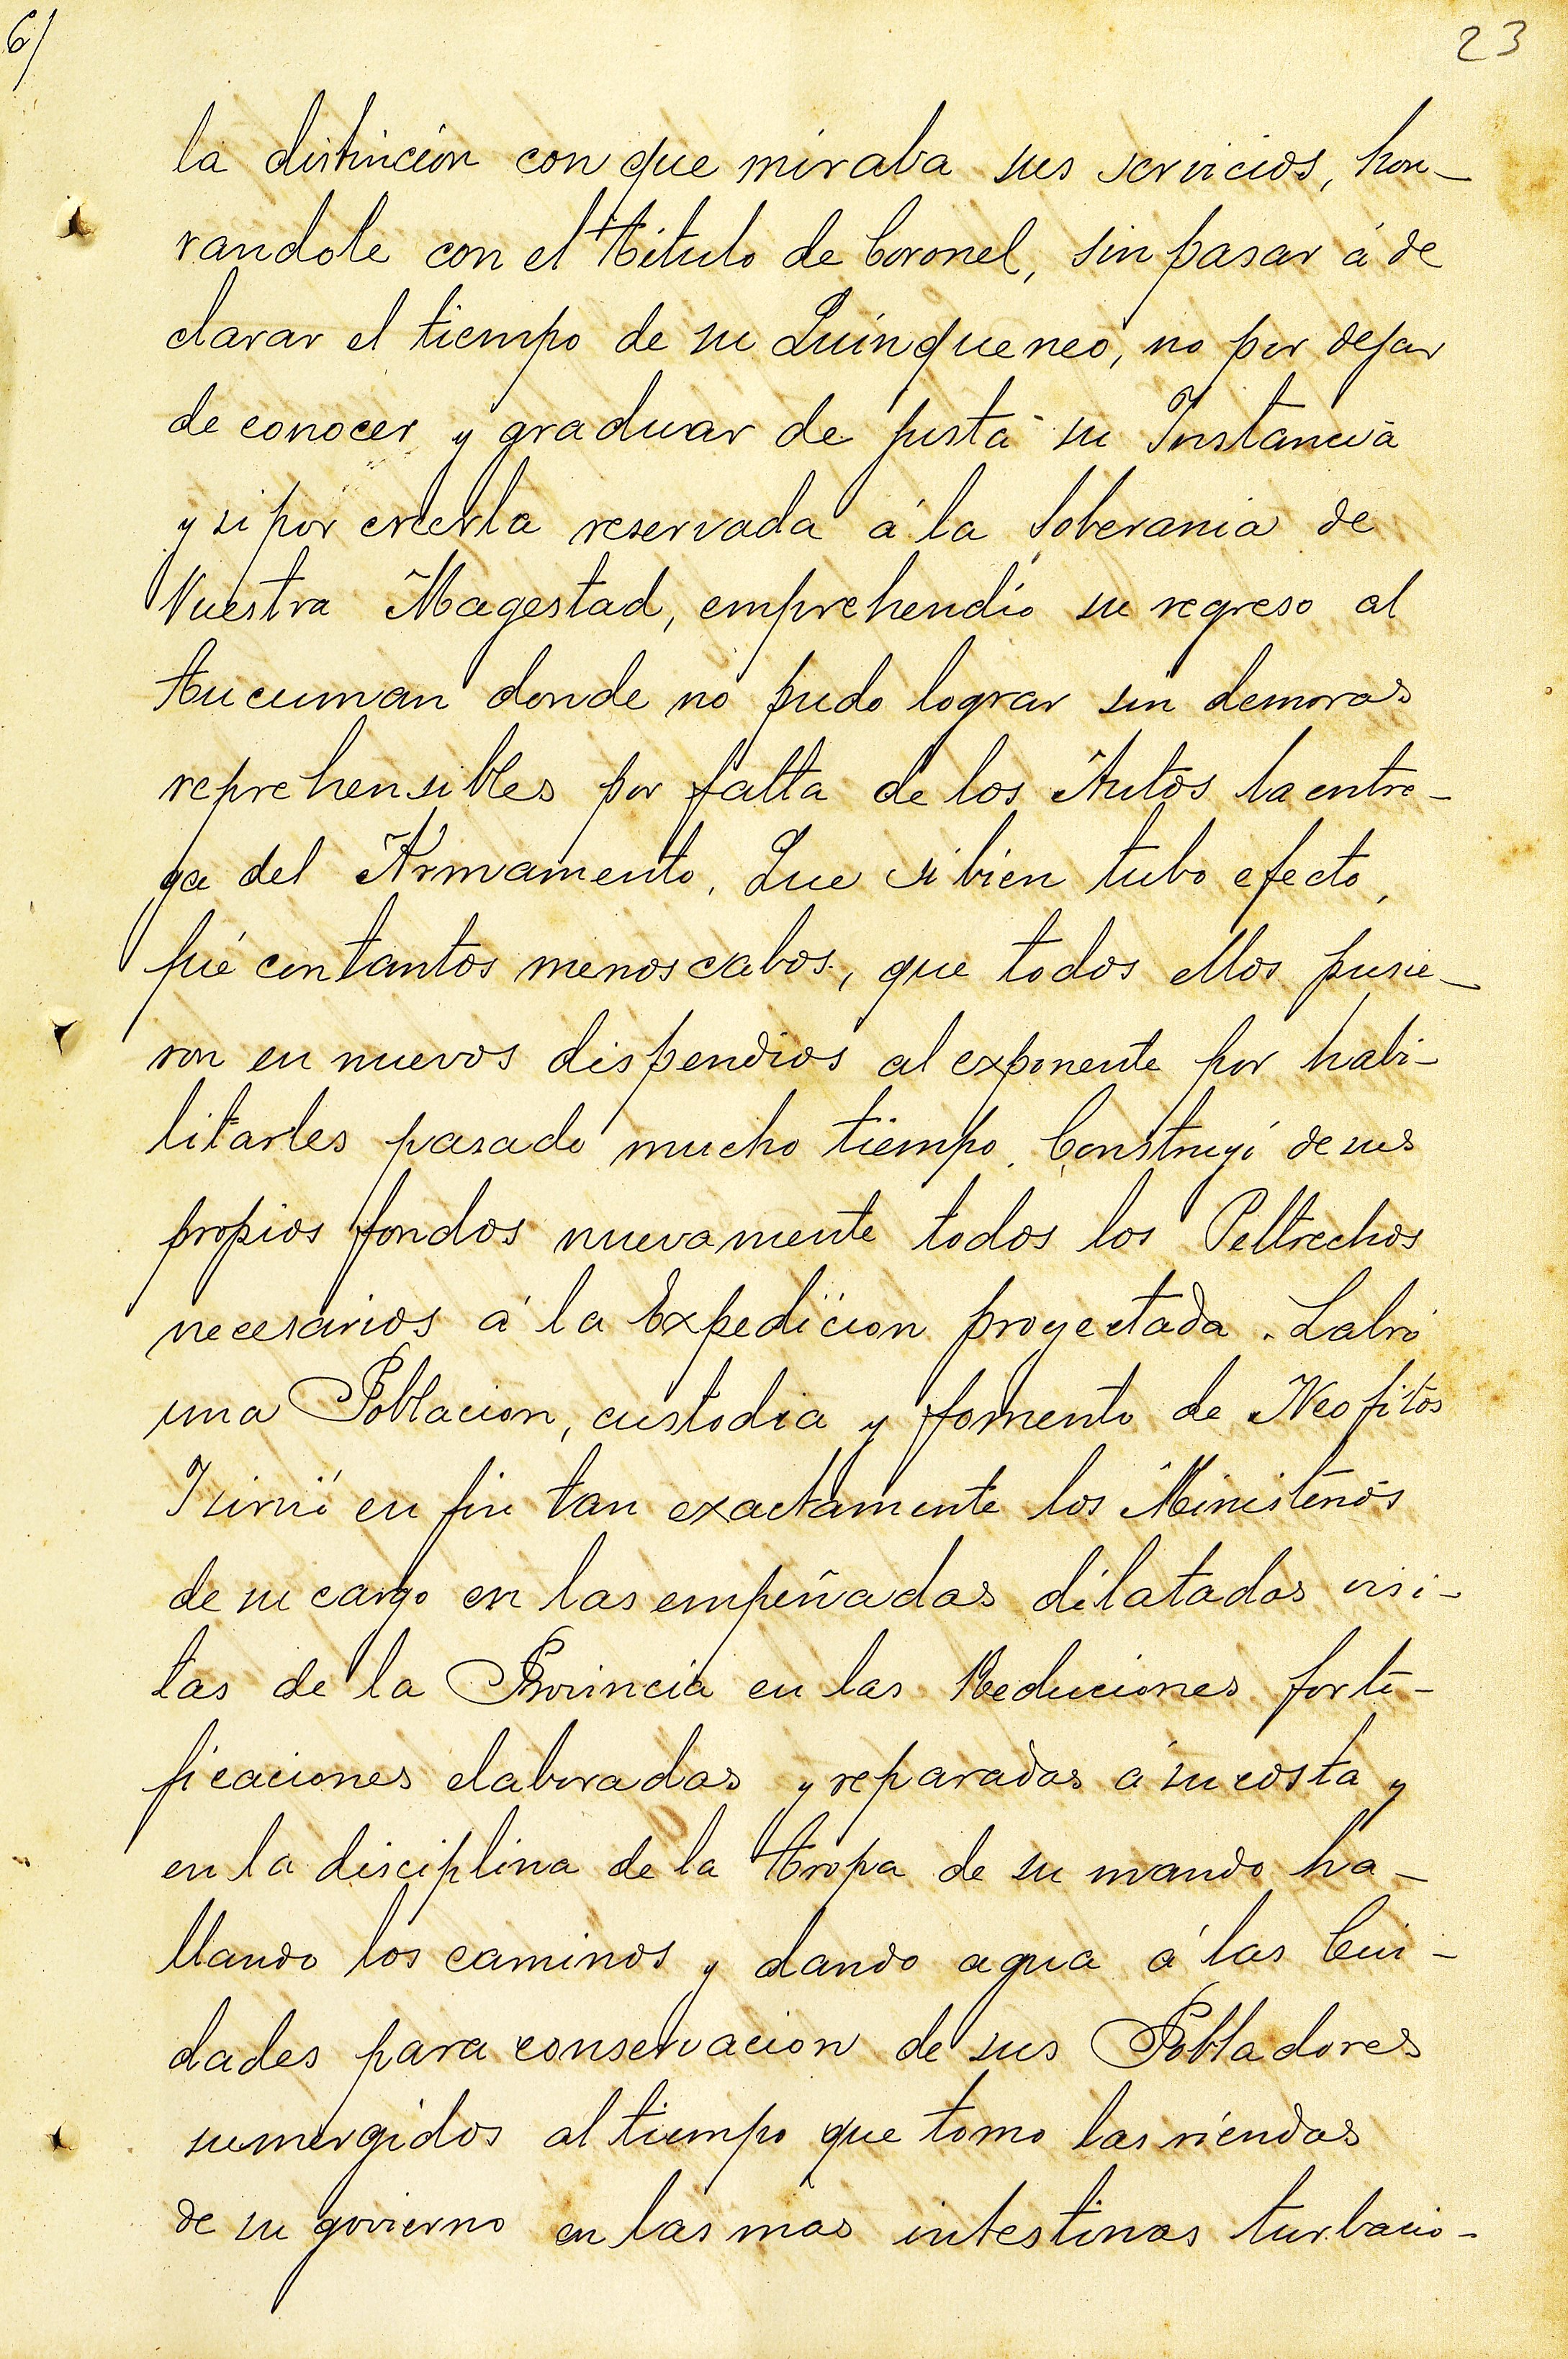 6/
23
la distincion con que miraba sus servicios, hon-
randole con el titulo de Coronel, sin pasar á de
clarar el tiempo de su Quinqueneo, no por dejar
de conocer y graduar de justa su Instancia
y si por creerla reservada á la Soberania de
Vuestra Magestad, emprehendió su regreso al
tucuman donde no pudo lograr sin demoras
reprehensibles por falta de los Autos la entre-
ga del Armamento. Que si bien tubo efecto,
fué con tantos menoscabos, que todos ellos pusie-
ron en nuevos dispendios al exponente por habi-
litarles pasado mucho tiempo. Construyó de sus
propios fondos nuevamente todos los Peltrechos
necesarios á la Expedicion proyectada. Labró
una Poblacion, custodia y fomento de Neofitos
I sirvió en fin tan exactamente los Ministerios
de su cargo en las empeñadas dilatadas visi-
tas de la Provincia en las Reduciones forti-
ficaciones elaboradas y reparadas á su costa y
en la disciplina de la tropa de su mando ha-
llando los caminos y dando agua á las Ciu-
dades para conservacion de sus Pobladores
sumergidos al tiempo que tomo las riendas
de su govierno en las mas intestinas turbacio-